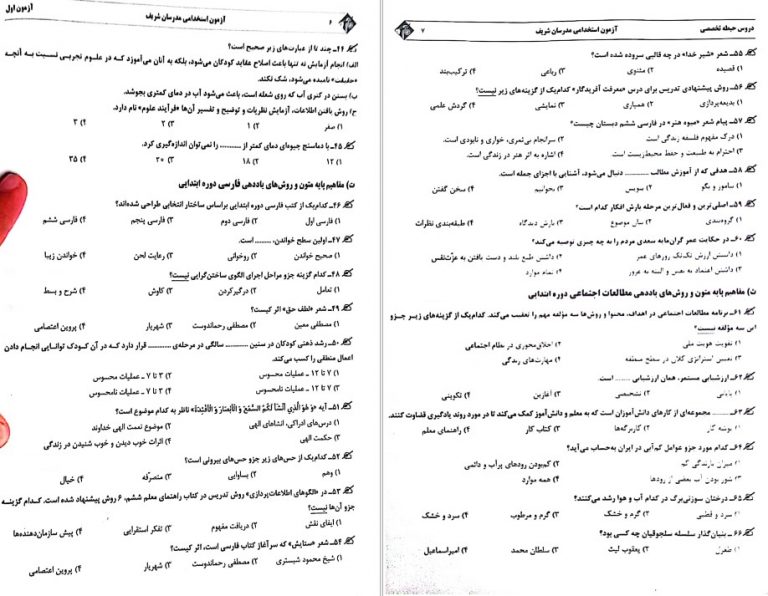 آزمون اول
آزمون استخدامی مدرسان شریف
۶
۴۴- چند تا از عبارت‌های زیر صحیح است؟
الف) انجام آزمایش نه تنها باعث اصلاح عقاید کودکان می‌شود، بلکه به آنان می‌آموزد که در علوم تجربی نسبت به آنچه
«حقیقت» نامیده می‌شود، شک نکند.
ب) بستن در کتری آب که روی شعله است، باعث می‌شود آب در دمای کمتری بجوشد.
ج) روش یافتن اطلاعات، آزمایش نظریات و توضیح و تفسیر آن‌ها «فرآیند علوم» نام دارد.
۱) صفر ۲) ۱ ۳) ۲ ۴) ۳
۴۵- با دماسنج جیوه‌ای دمای کمتر از ......... را نمی‌توان اندازه‌گیری کرد.
۱) ۱۲ ۲) ۱۸ ۳) ۲۰ ۴) ۳۵
ت) مفاهیم پایه متون و روش‌های یاددهی فارسی دوره ابتدایی
۴۶- کدام‌یک از کتب فارسی دوره ابتدایی براساس ساختار انتخابی طراحی شده‌اند؟
۱) فارسی اول ۲) فارسی دوم ۳) فارسی پنجم ۴) فارسی ششم
۴۷- اولین سطح خواندن، ......... است.
۱) صحیح خواندن ۲) روخوانی ۳) رعایت لحن ۴) خواندن زیبا
۴۸- کدام گزینه جزو مراحل اجرای الگوی ساختن‌گرایی نیست؟
۱) تعامل ۲) درگیرکردن ۳) کاوش ۴) شرح و بسط
۴۹- شعر «لطف حق» اثر کیست؟
۱) مصطفی معین ۲) مصطفی رحماندوست ۳) شهریار ۴) پروین اعتصامی
۵۰- رشد ذهنی کودکان در سنین ......... سالگی در مرحله‌ی ......... قرار دارد که در آن کودک توانایی انجام دادن
اعمال منطقی را کسب می‌کند.
۱) ۷ تا ۱۲ ـ عملیات محسوس ۲) ۳ تا ۷ ـ عملیات محسوس
۳) ۷ تا ۱۲ ـ عملیات نامحسوس ۴) ۳ تا ۷ ـ عملیات نامحسوس
۵۱- آیه «وَ هُوَ الَّذِي أَنْشَأَ لَكُمُ السَّمْعَ وَ الْأَبْصَارَ وَ الْأَفْئِدَةَ» ناظر به کدام موضوع است؟
۱) درس‌های ادراکی، انشاهای الهی ۲) موضوع نعمت الهی خداوند
۳) حکمت الهی ۴) اثرات خوب دیدن و خوب شنیدن در زندگی
۵۲- کدام‌یک از حس‌های زیر جزو حس‌های بیرونی است؟
۱) وهم ۲) بساوایی ۳) متصرّفه ۴) خیال
۵۳- در «الگوهای اطلاعات‌پردازی» روش تدریس در کتاب راهنمای معلم ششم، ۶ روش پیشنهاد شده است. کدام گزینه
جزو آن‌ها نیست؟
۱) ایفای نقش ۲) دریافت مفهوم ۳) تفکر استقرایی ۴) پیش سازمان‌دهنده‌ها
۵۴- شعر «ستایش» که سرآغاز کتاب فارسی است، اثر کیست؟
۱) شیخ محمود شبستری ۲) مصطفی رحماندوست ۳) شهریار ۴) پروین اعتصامی
دروس حیطه تخصصی
آزمون استخدامی مدرسان شریف
۷
۵۵- شعر «شیر خدا» در چه قالبی سروده شده است؟
۱) قصیده ۲) مثنوی ۳) رباعی ۴) ترکیب‌بند
۵۶- روش پیشنهادی تدریس برای درس «معرفت آفریدگار» کدام‌یک از گزینه‌های زیر نیست؟
۱) بدیعه‌پردازی ۲) همیاری ۳) نمایشی ۴) گردش علمی
۵۷- پیام شعر «میوه هنر» در فارسی ششم دبستان چیست؟
۱) درک مفهوم فلسفه زندگی است. ۲) سرانجام بی‌ثمری، خواری و نابودی است.
۳) احترام به طبیعت و حفظ محیط‌زیست است. ۴) اشاره به اثر هنر در زندگی است.
۵۸- هدفی که از آموزش مطالب ......... دنبال می‌شود، آشنایی با اجزای جمله است.
۱) بیاموز و بگو ۲) بنویس ۳) بخوانیم ۴) سخن گفتن
۵۹- اصلی‌ترین و فعال‌ترین مرحله بارش افکار کدام است؟
۱) گروه‌بندی ۲) بیان موضوع ۳) بارش دیدگاه ۴) طبقه‌بندی نظرات
۶۰- در حکایت عمر گران‌مایه سعدی مردم را به چه چیزی توصیه می‌کند؟
۱) دانستن ارزش تک‌تک روزهای عمر ۲) داشتن طبع بلند و دست یافتن به عزّت‌نفس
۳) داشتن اعتماد به نفس و البته نه غرور ۴) تمام موارد
ث) مفاهیم پایه متون و روش‌های یاددهی مطالعات اجتماعی دوره ابتدایی
۶۱- برنامه مطالعات اجتماعی در اهداف، محتوا و روش‌ها سه مؤلفه مهم را تعقیب می‌کند. کدام‌یک از گزینه‌های زیر جزو
این سه مؤلفه نیست؟
۱) تقویت هویت ملی ۲) اخلاق‌محوری در نظام اجتماعی
۳) تعیین استراتژی کلان در سطح منطقه ۴) مهارت‌های زندگی
۶۲- ارزشیابی مستمر، همان ارزشیابی ......... است.
۱) پایانی ۲) تشخیصی ۳) آغازین ۴) تکوینی
۶۳- ......... مجموعه‌ای از کارهای دانش‌آموزان است که به معلم و دانش‌آموز کمک می‌کند تا در مورد روند یادگیری قضاوت کنند.
۱) پوشه کار ۲) کاربرگه‌ها ۳) کتاب کار ۴) راهنمای معلم
۶۴- کدام مورد جزو عوامل کم‌آبی در ایران به‌حساب می‌آید؟
۱) میزان بارندگی کم ۲) کم‌بودن رودهای پرآب و دائمی
۳) شور بودن آب بعضی از رودها ۴) همه موارد
۶۵- درختان سوزنی‌برگ در کدام آب و هوا رشد می‌کنند؟
۱) سرد و قطبی ۲) گرم و خشک ۳) گرم و مرطوب ۴) سرد و خشک
۶۶- بنیان‌گذار سلسله سلجوقیان چه کسی بود؟
۱) طغرل ۲) یعقوب لیث ۳) سلطان محمد ۴) امیراسماعیل